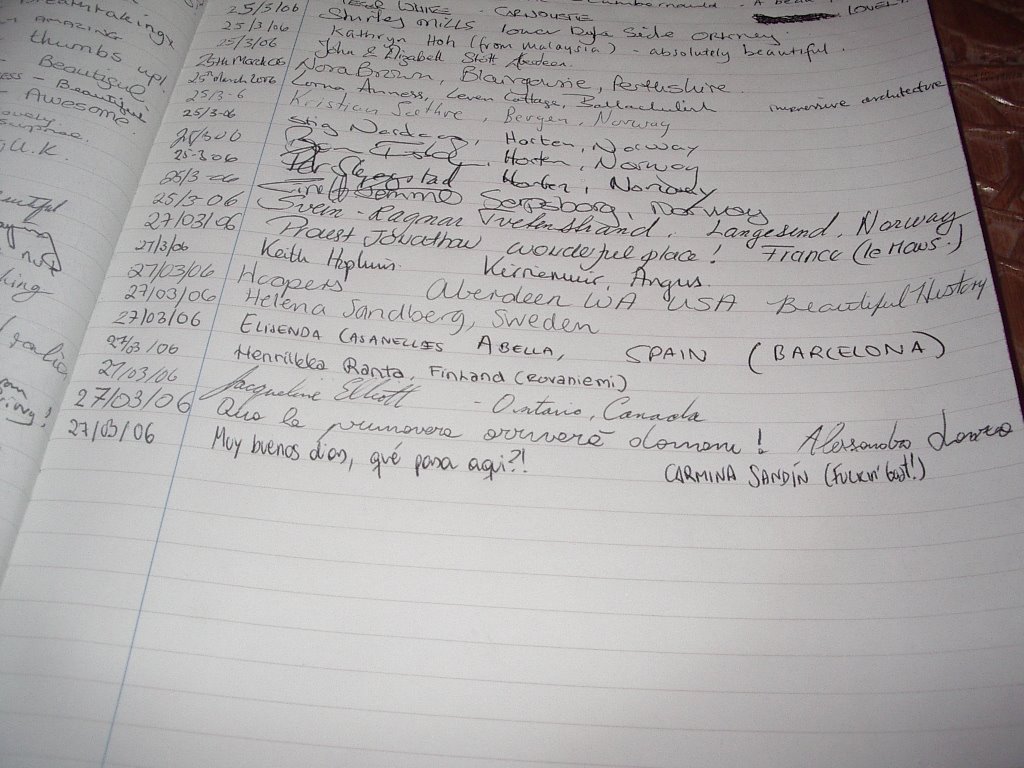 Breathtaking
AMAZING
thumbs up!
Beautiful
- Beautiful
- Awesome.
U.K.
not
25/3/06 WHITE - CARNOUSTIE LOVELY
25/3/06 Shirley Mills Side Orkney.
25/3/06 Kathryn Hoh (from malaysia) - absolutely beautiful.
John & Elizabeth Stott Aberdeen.
25th March 06 Nora Brown, Blairgowrie, Perthshire.
25th March 2006 Lorna Anness, Leven Cottage, Ballachulish impressive architecture
25/3-06 Kristian Sæthre, Bergen, Norway
25/3-06 Stig Horten, Norway
25-3-06 Horten, Norway
25/3-06 Per Skregstad Horten, Norway
25/3-06 Sarpsborg, Norway
Svein-Ragnar Tvetenstrand, Langesund, Norway
27/03/06 Proust Jonathan wonderful place! France (le Mans.)
27/3/06 Keith Hopkins. Kirriemuir, Angus.
27/03/06 Hoopers Aberdeen WA USA Beautiful History
27/03/06 Helena Sandberg, Sweden
27/03/06 ELISENDA CASANELLES ABELLA, SPAIN (BARCELONA)
27/03/06 Henriikka Ranta, Finland (Rovaniemi)
27/03/06 Jacqueline Elliott - Ontario, Canada
27/03/06 la primavera arriverà domani! Alessandro
27/03/06 Muy buenos días, qué pasa aqui?! CARMINA SANDÍN (Fuckin' best!)